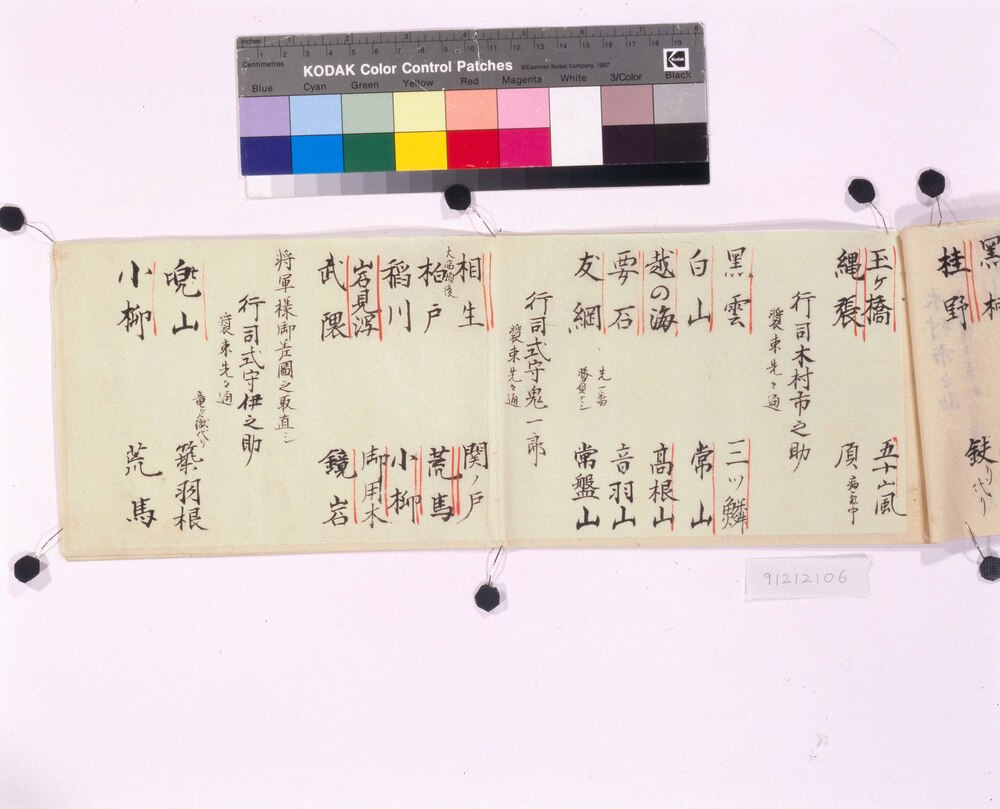 Inches 1 2 3 4 5 6 7 8
Centimetres 1 2 3 4 5 6 7 8 9 10 11 12 13 14 15 16 17 18 19
KODAK Color Control Patches
©Eastman Kodak Company, 1997
Kodak
Blue Cyan Green Yellow Red Magenta White 3/Color Black
桂野
玉ヶ橋 五十嵐
縄張 頂
行司木村市之助
装束先々通
黒雲 三ツ鱗
白山 常山
越の海 高根山
要石 音羽山
先一番
勝負ナシ
友綱 常盤山
行司式守鬼一郎
装束先々通
相生 関ノ戸
柏戸 荒馬
稲川 小柳
岩見潟 御用木
武隈 鏡岩
将軍様御差図之取直シ
行司式守伊之助
装束先々通
兜山 築羽根
小柳 荒馬
91212106